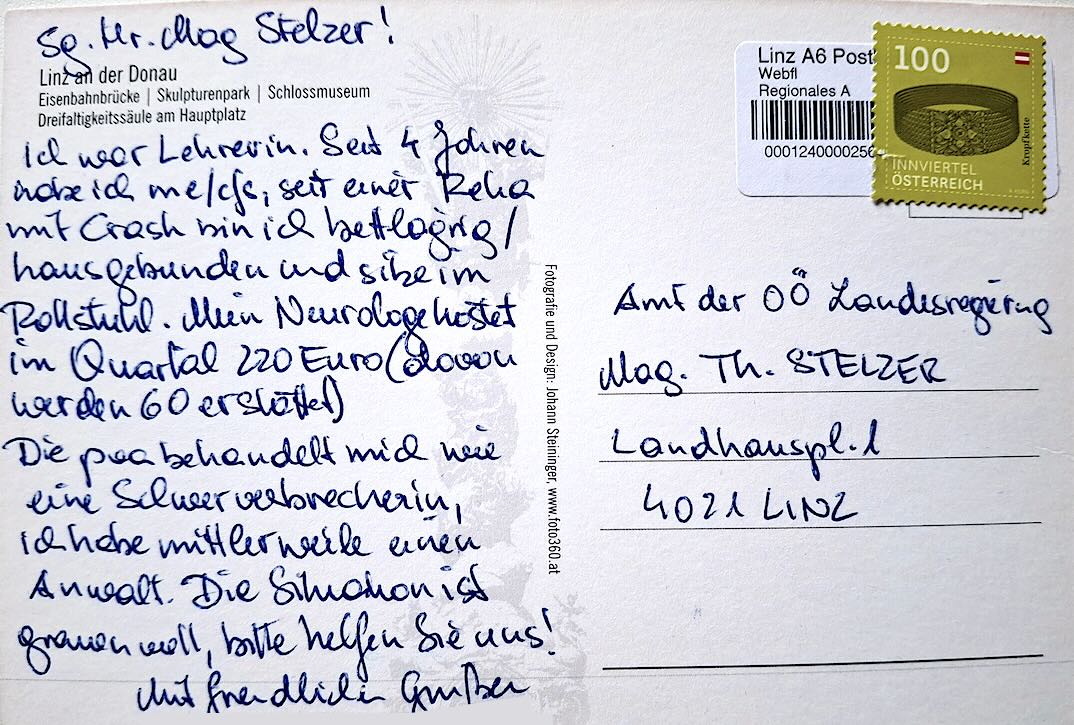 Sg. Hr. Mag Stelzer!
Linz an der Donau
Eisenbahnbrücke | Skulpturenpark | Schlossmuseum
Dreifaltigkeitssäule am Hauptplatz
Ich war Lehrerin. Seit 4 Jahren
habe ich me/cfs, seit einer Reha
mit Crash bin ich bettlägrig/
hausgebunden und sitze im
Rollstuhl. Mein Neurologe kostet
im Quartal 220 Euro (davon
werden 60 erstattet)
Die pva behandelt mich wie
eine Schwerverbrecherin,
ich habe mittlerweile einen
Anwalt. Die Situation ist
grauenvoll, bitte helfen Sie uns!
Mit freundlichen Grüßen
Fotografie und Design: Johann Steininger, www.foto360.at
Linz A6 Post
Webfl
Regionales A
0001240000256
100
Kropfkette
INNVIERTEL
ÖSTERREICH
Amt der OÖ Landesregierung
Mag. Th. STELZER
Landhauspl. 1
4021 LINZ